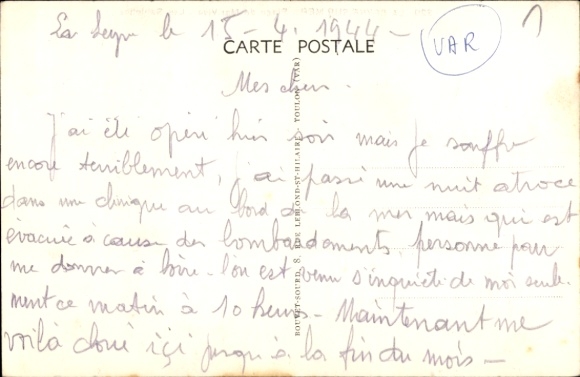 La Seyne le 15-4.1944-
VAR
CARTE POSTALE
Mes chers.
J'ai été opéré hier soir mais je souffre
encore terriblement, j'ai passé une nuit atroce
dans une clinique au bord de la mer mais qui est
évacuée à cause des bombardements, personne pour
me donner à boire - l'on est venu s'inquiéter de moi seule-
ment ce matin à 10 heures - Maintenant me
voilà cloué ici jusqu'à la fin du mois -
BOUVET-SOURD, 8, RUE LEBLOND-ST-HILAIRE, TOULON (VAR)